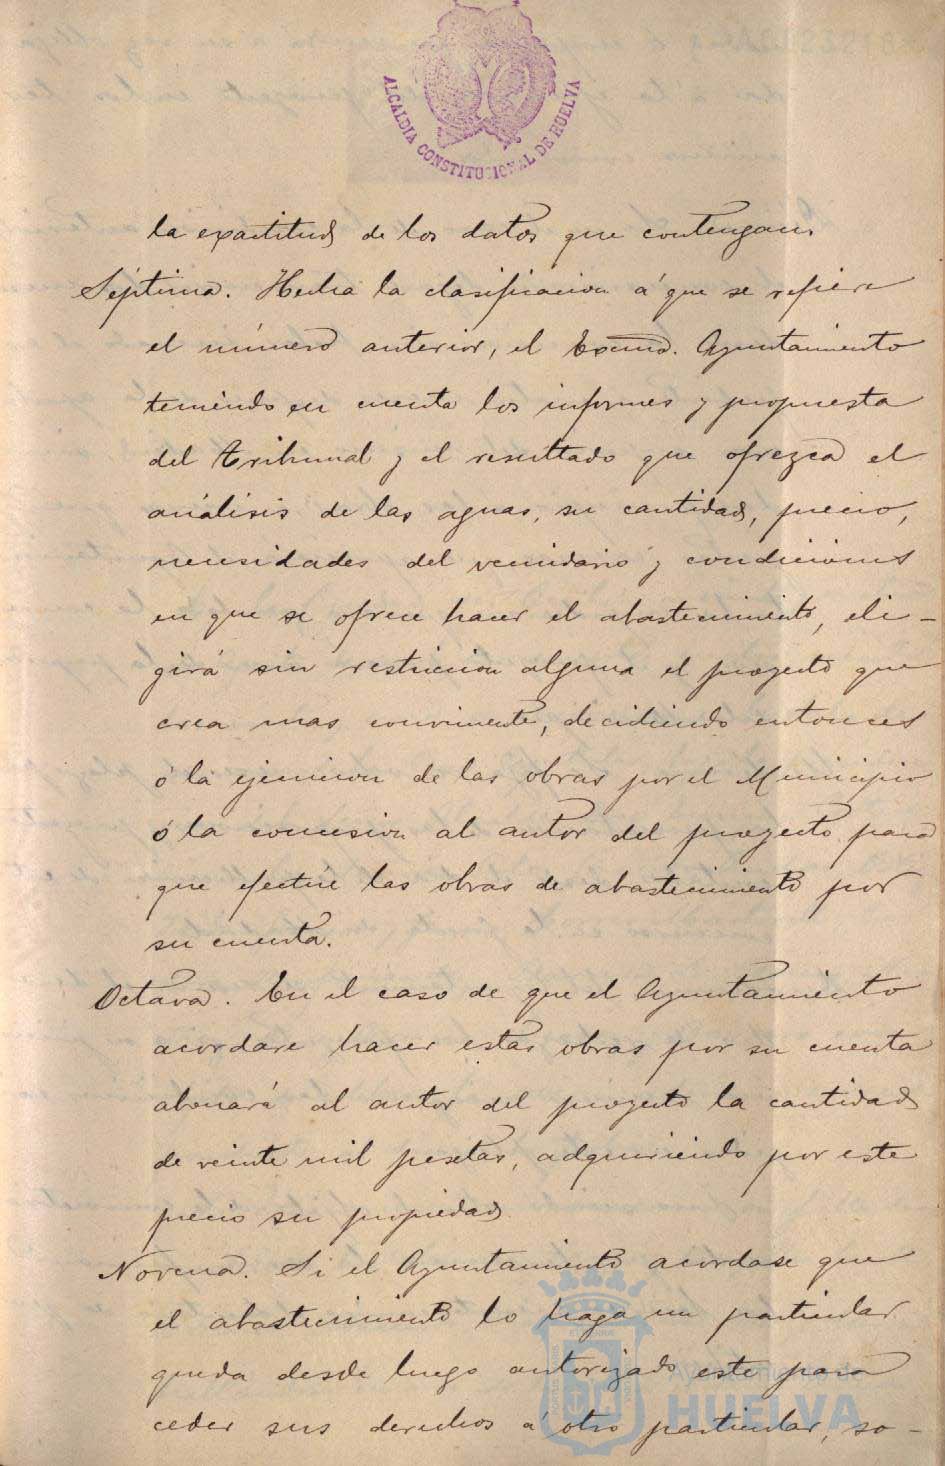 ALCALDIA CONSTITUCIONAL DE HUELVA
la exactitud de los datos que contengan.
Séptima. Hecha la clasificacion á que se refiere
el número anterior, el Excmo. Ayuntamiento
teniendo en cuenta los informes y propuesta
del tribunal y el resultado que ofrezca el
análisis de las aguas, su cantidad, precio,
necesidades del vecindario y condiciones
en que se ofrece hacer el abastecimiento, eli-
girá sin restriccion alguna el proyecto que
crea mas conveniente, decidiendo entonces
ó la ejecucion de las obras por el Municipio
ó la concesion al autor del proyecto para
que efectúe las obras de abastecimiento por
su cuenta.
Octava. En el caso de que el Ayuntamiento
acordare hacer estas obras por su cuenta
abonará al autor del proyecto la cantidad
de veinte mil pesetas, adquiriendo por este
precio su propiedad.
Novena. Si el Ayuntamiento acordase que
el abastecimiento lo haga un particular
queda desde luego autorizado este para
ceder sus derechos á otro particular, so-
Ayuntamiento de
HUELVA